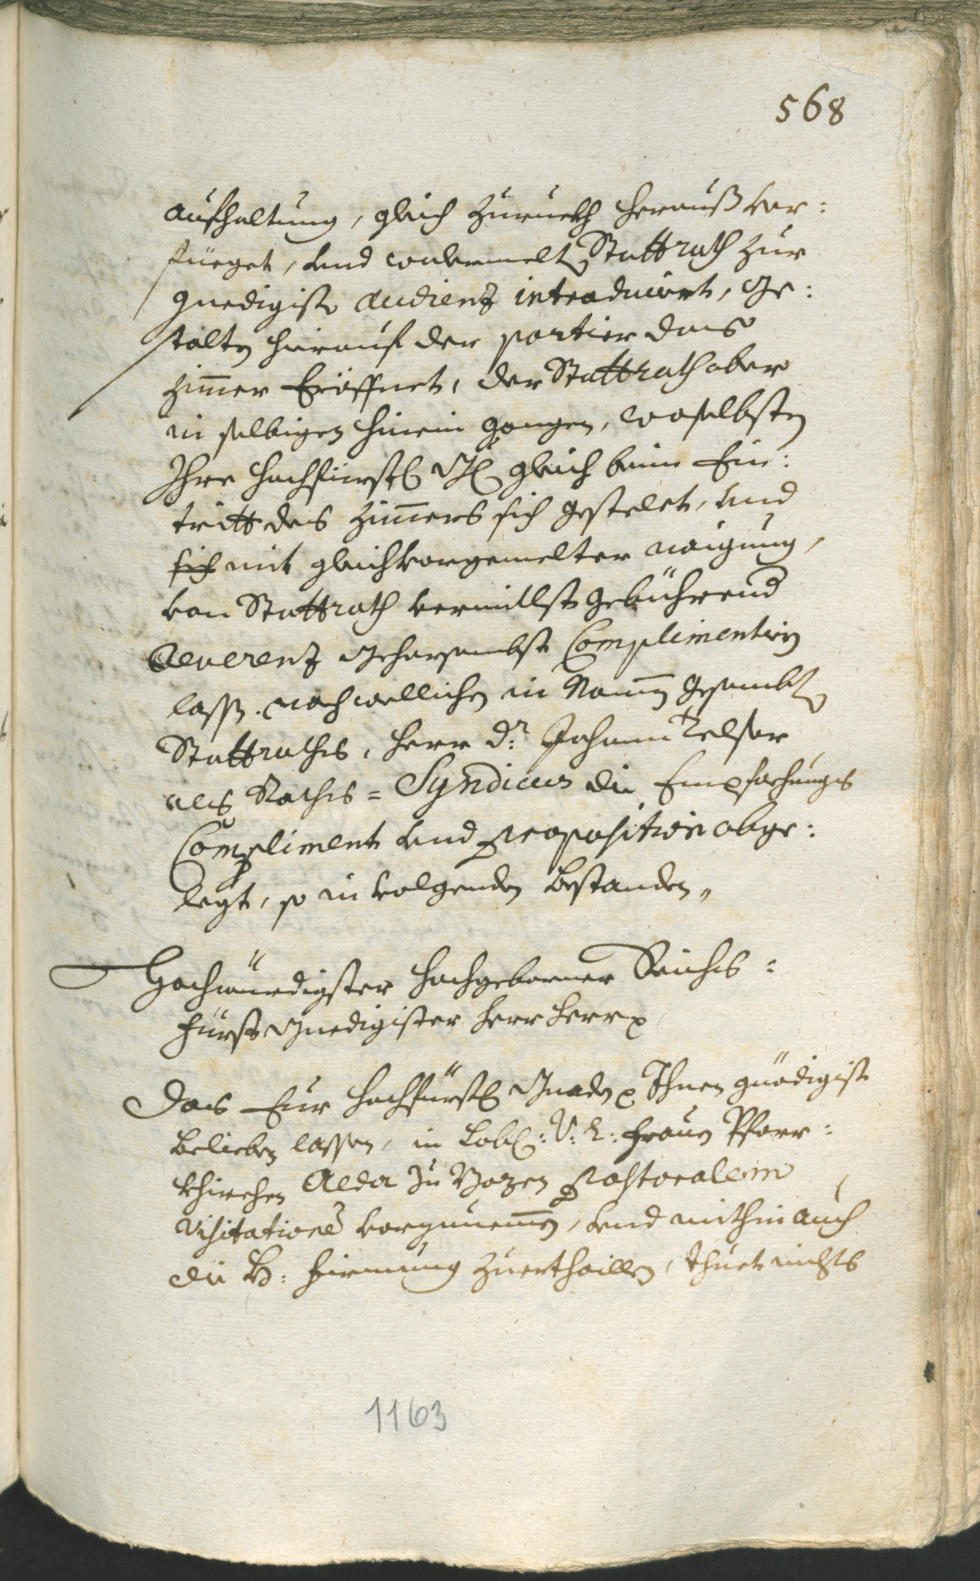 568
aufhaltung, gleich zuruckh herauß ver:
füeget, und wolermelt Stattrath zur
gnedigist Audienz introduciert, Ge:
stalten hierauf der portier das
Zimer Eröffnet, der Stattrath aber
in selbiges hinein gangen, woselbsten
Ihro hochfürstl Gl gleich beim Ein:
tritt des Zimers sich gestelet, und
sich mit gleich vorgemelter naigung,
von Stattrath vermitlst gebührend
Reverenz gehorsambst Complimentirn
lassen. nach welichen in Namen gesambten
Stattrathes, herr Dr: Johann Zelser
als Rathes = Syndicus die Empfachungs
Compliment und Proposition abge:
legt, so in volgenden bestanden,,
Hochwürdigster Hochgeborner Reichs:
Fürst Gnedigister Herr Herr
Das Eur hochfürstl Gnaden Ihnen gnädigist
belieben lassen, in Lobl: U: L: Frauen Pfarr:
khirchen Alda zu Bozen Pastoralem
Visitationem vorzunemen, und mithin auch
die H: Firmung zuerthaillen, thuet nichts
1163